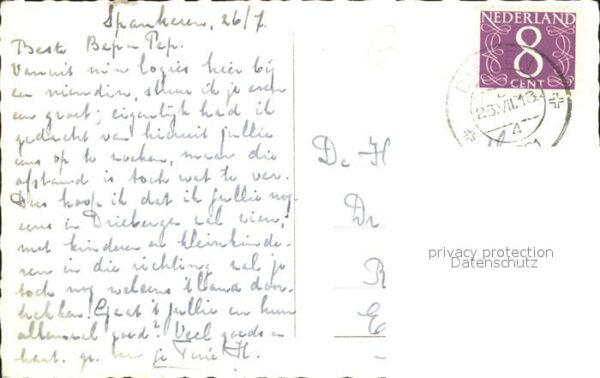 Spankeren, 26/7
Beste Bep en Pep.
Vanuit m'n logies hier bij
een vriendin, stuur ik je even
een groet; eigenlijk had ik
gedacht van hieruit jullie
eens op te zoeken, maar die
afstand is toch wat te ver.
Dus hoop ik dat ik jullie nog
eens in Driebergen zal zien;
met kinderen en kleinkinde-
ren in die richting zal je
toch nog weleens 't land door-
trekken. Gaat 't jullie en hun
allemaal goed? Veel goeds en
hart. gr. van je H.
NEDERLAND
8
CENT
4
De H
Dr
R
E
privacy protection
Datenschutz